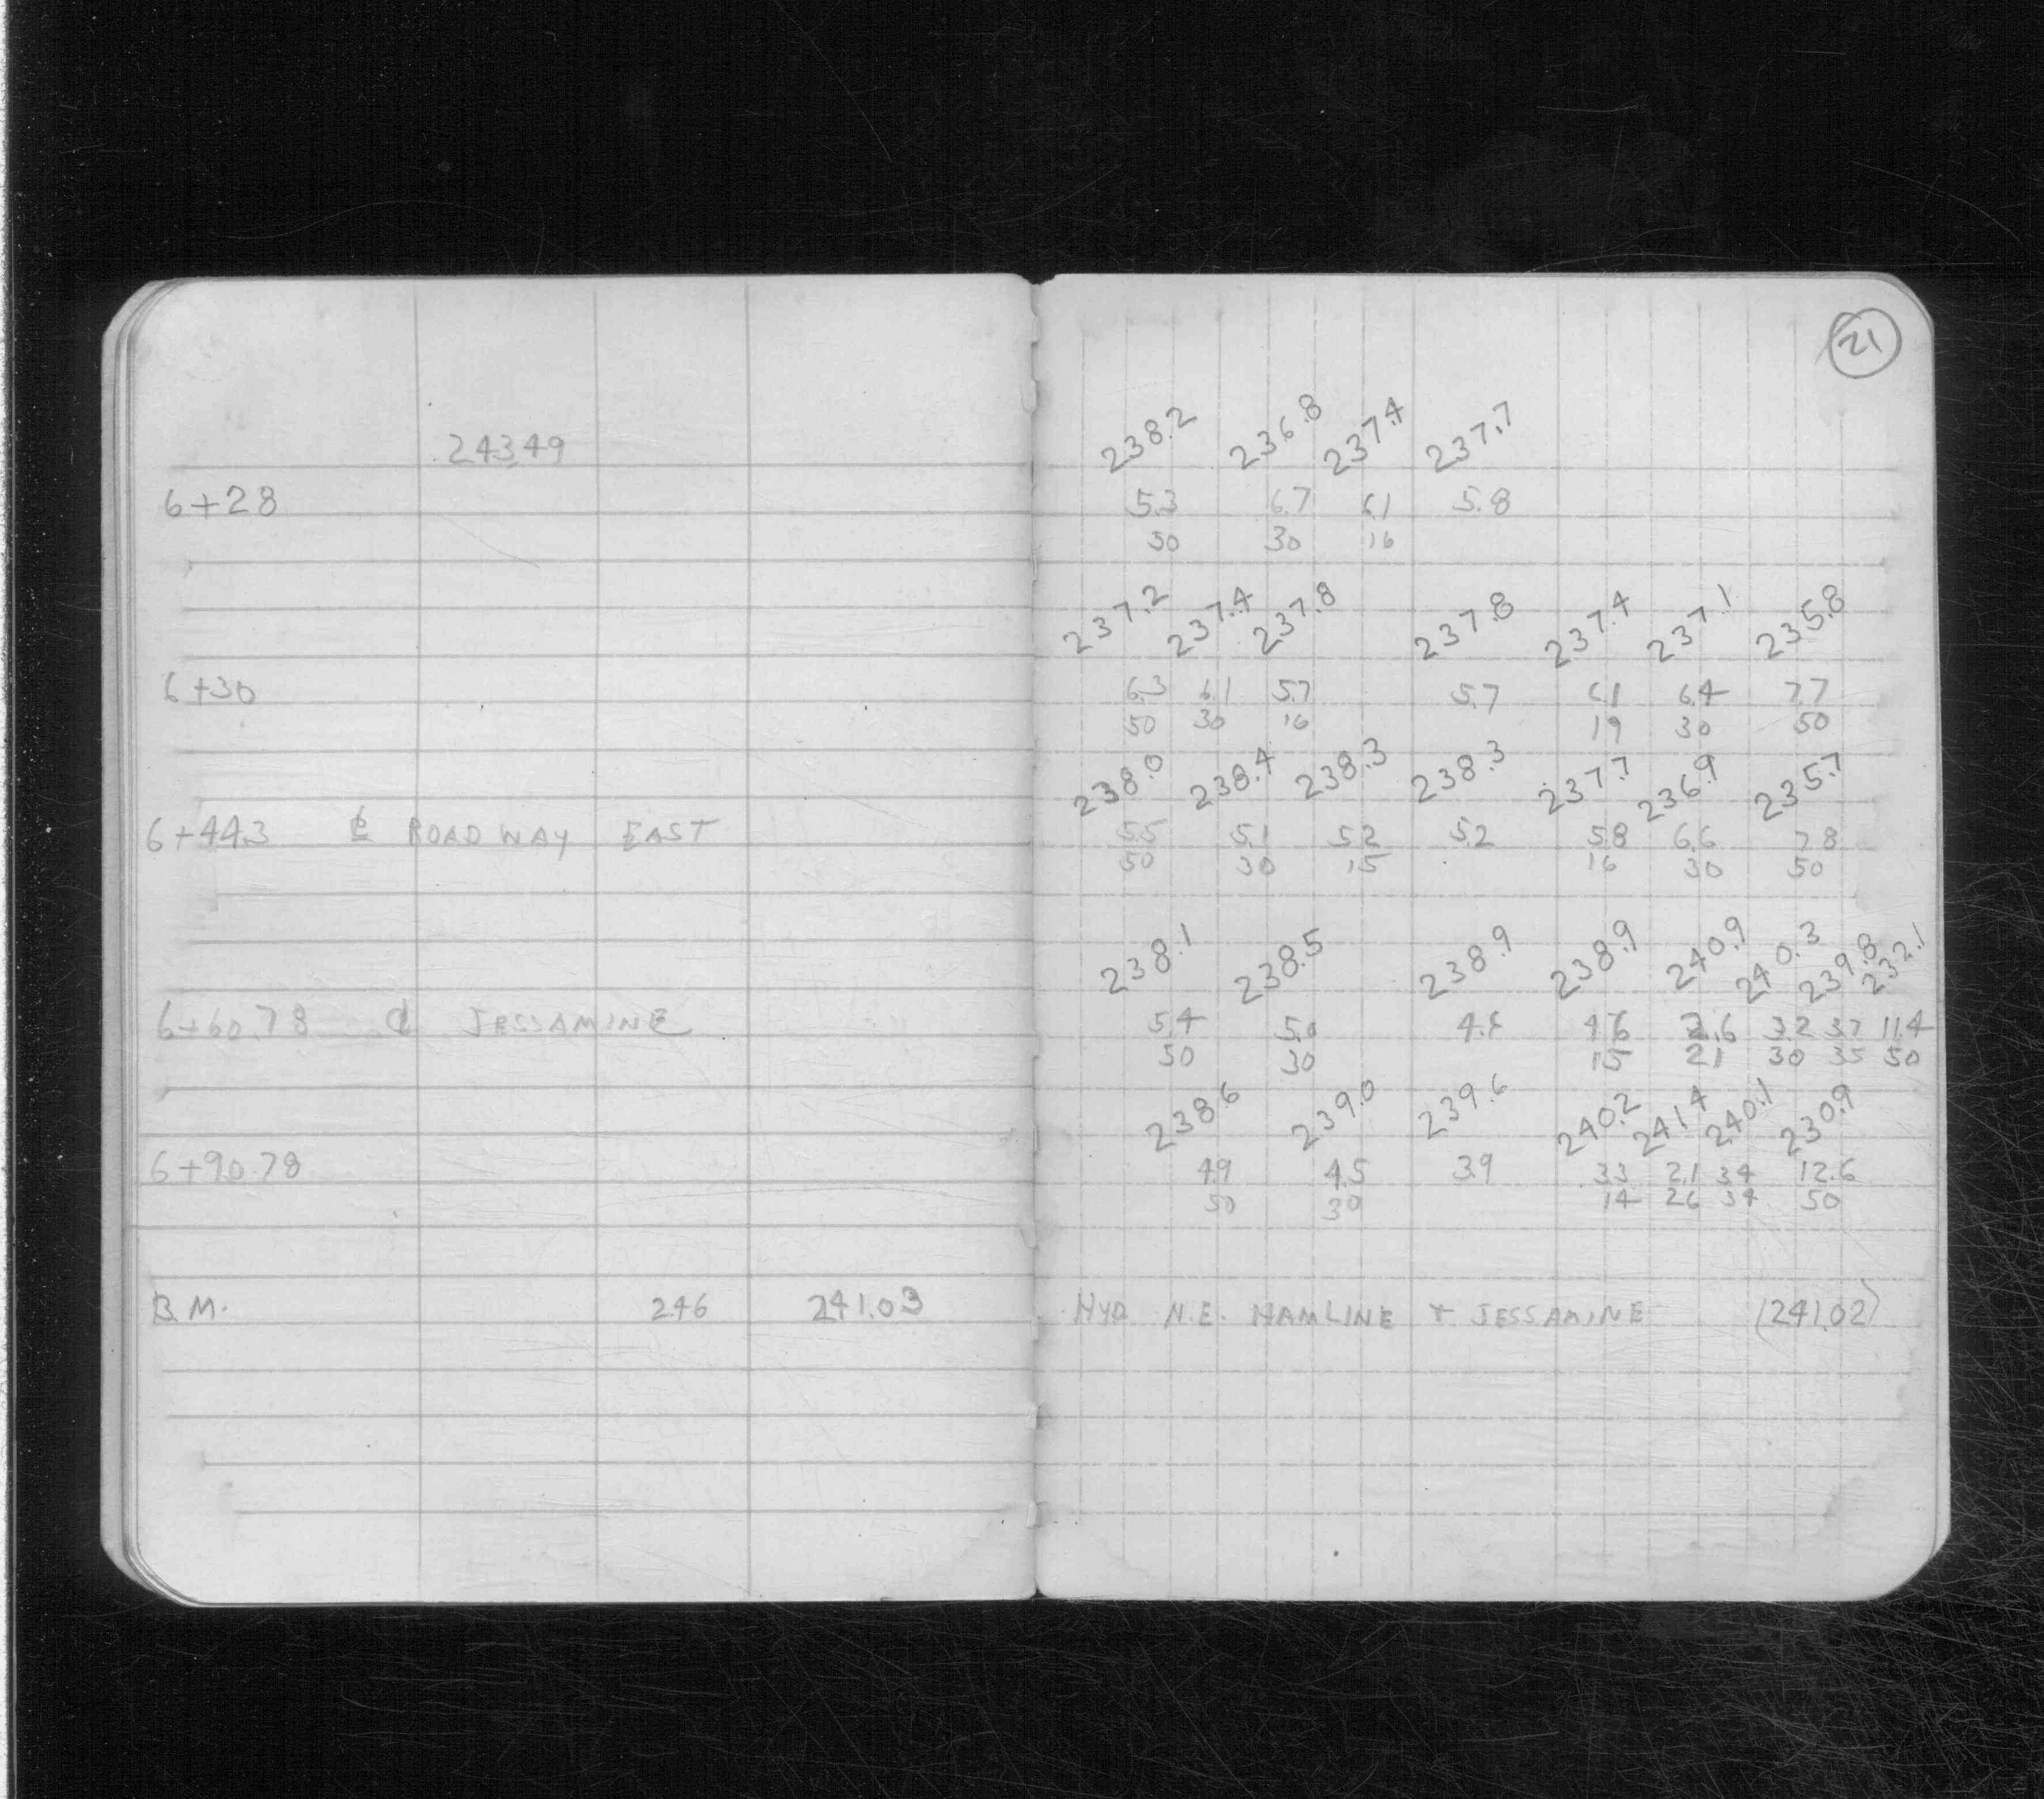 21
243.49
238.2 236.8 237.4 237.7
6+28 5.3 6.7 6.1 5.8
50 30 16
237.2 237.4 237.8 237.8 237.4 237.1 235.8
6+30 6.3 6.1 5.7 5.7 6.1 6.4 7.7
50 30 16 19 30 50
238.0 238.4 238.3 238.3 237.7 236.9 235.7
6+44.3 ℄ ROADWAY EAST 5.5 5.1 5.2 5.2 5.8 6.6 7.8
50 30 15 16 30 50
238.1 238.5 238.9 238.9 240.9 240.3 239.8 232.1
6+60.78 ℄ JESSAMINE 5.4 5.0 4.6 4.6 2.6 3.2 3.7 11.4
50 30 15 21 30 35 50
238.6 239.0 239.6 240.2 241.4 240.1 230.9
6+90.78 4.9 4.5 3.9 3.3 2.1 3.4 12.6
50 30 14 26 34 50
B.M. 2.46 241.03 HYD N.E. HAMLINE + JESSAMINE (241.02)